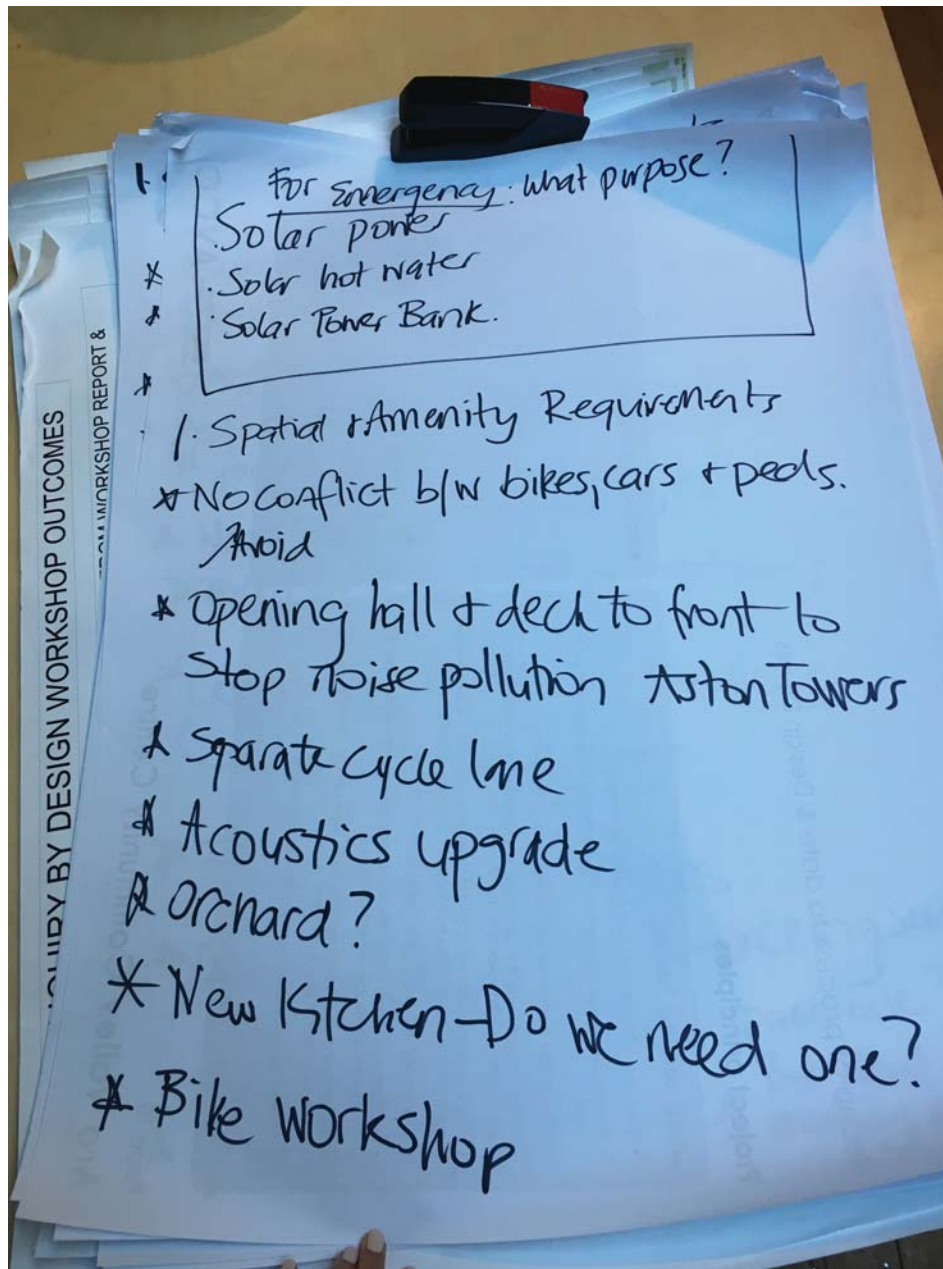 For Emergency: what purpose?
. Solar power
. Solar hot water
. Solar Power Bank.
1. Spatial & Amenity Requirements
* No conflict b/w bikes, cars & peds.
Avoid
* Opening hall & deck to front to
stop noise pollution Aston Towers
* Separate cycle lane
* Acoustics upgrade
* Orchard?
* New Kitchen - Do we need one?
* Bike workshop
BY DESIGN WORKSHOP OUTCOMES
WORKSHOP REPORT &